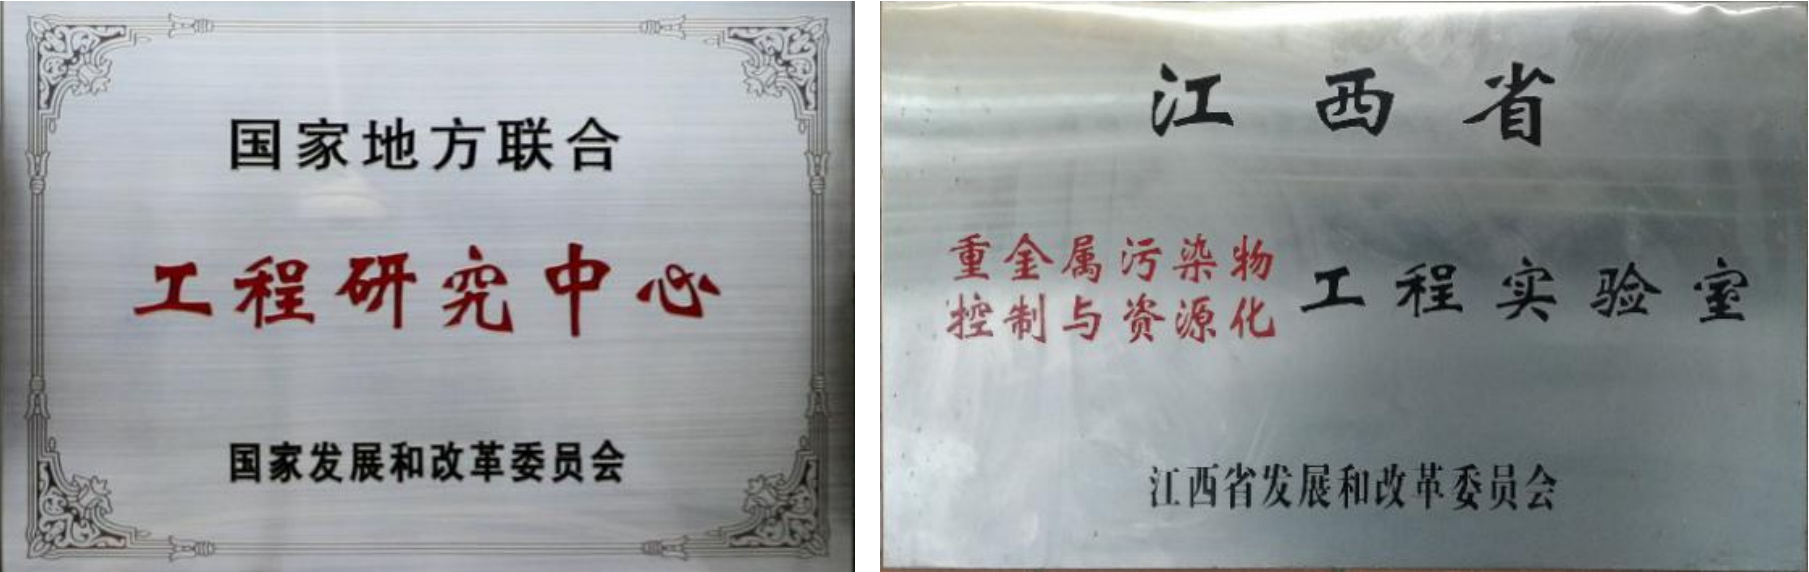 国家地方联合
工程研究中心
国家发展和改革委员会
江西省
重金属污染物
控制与资源化
工程实验室
江西省发展和改革委员会